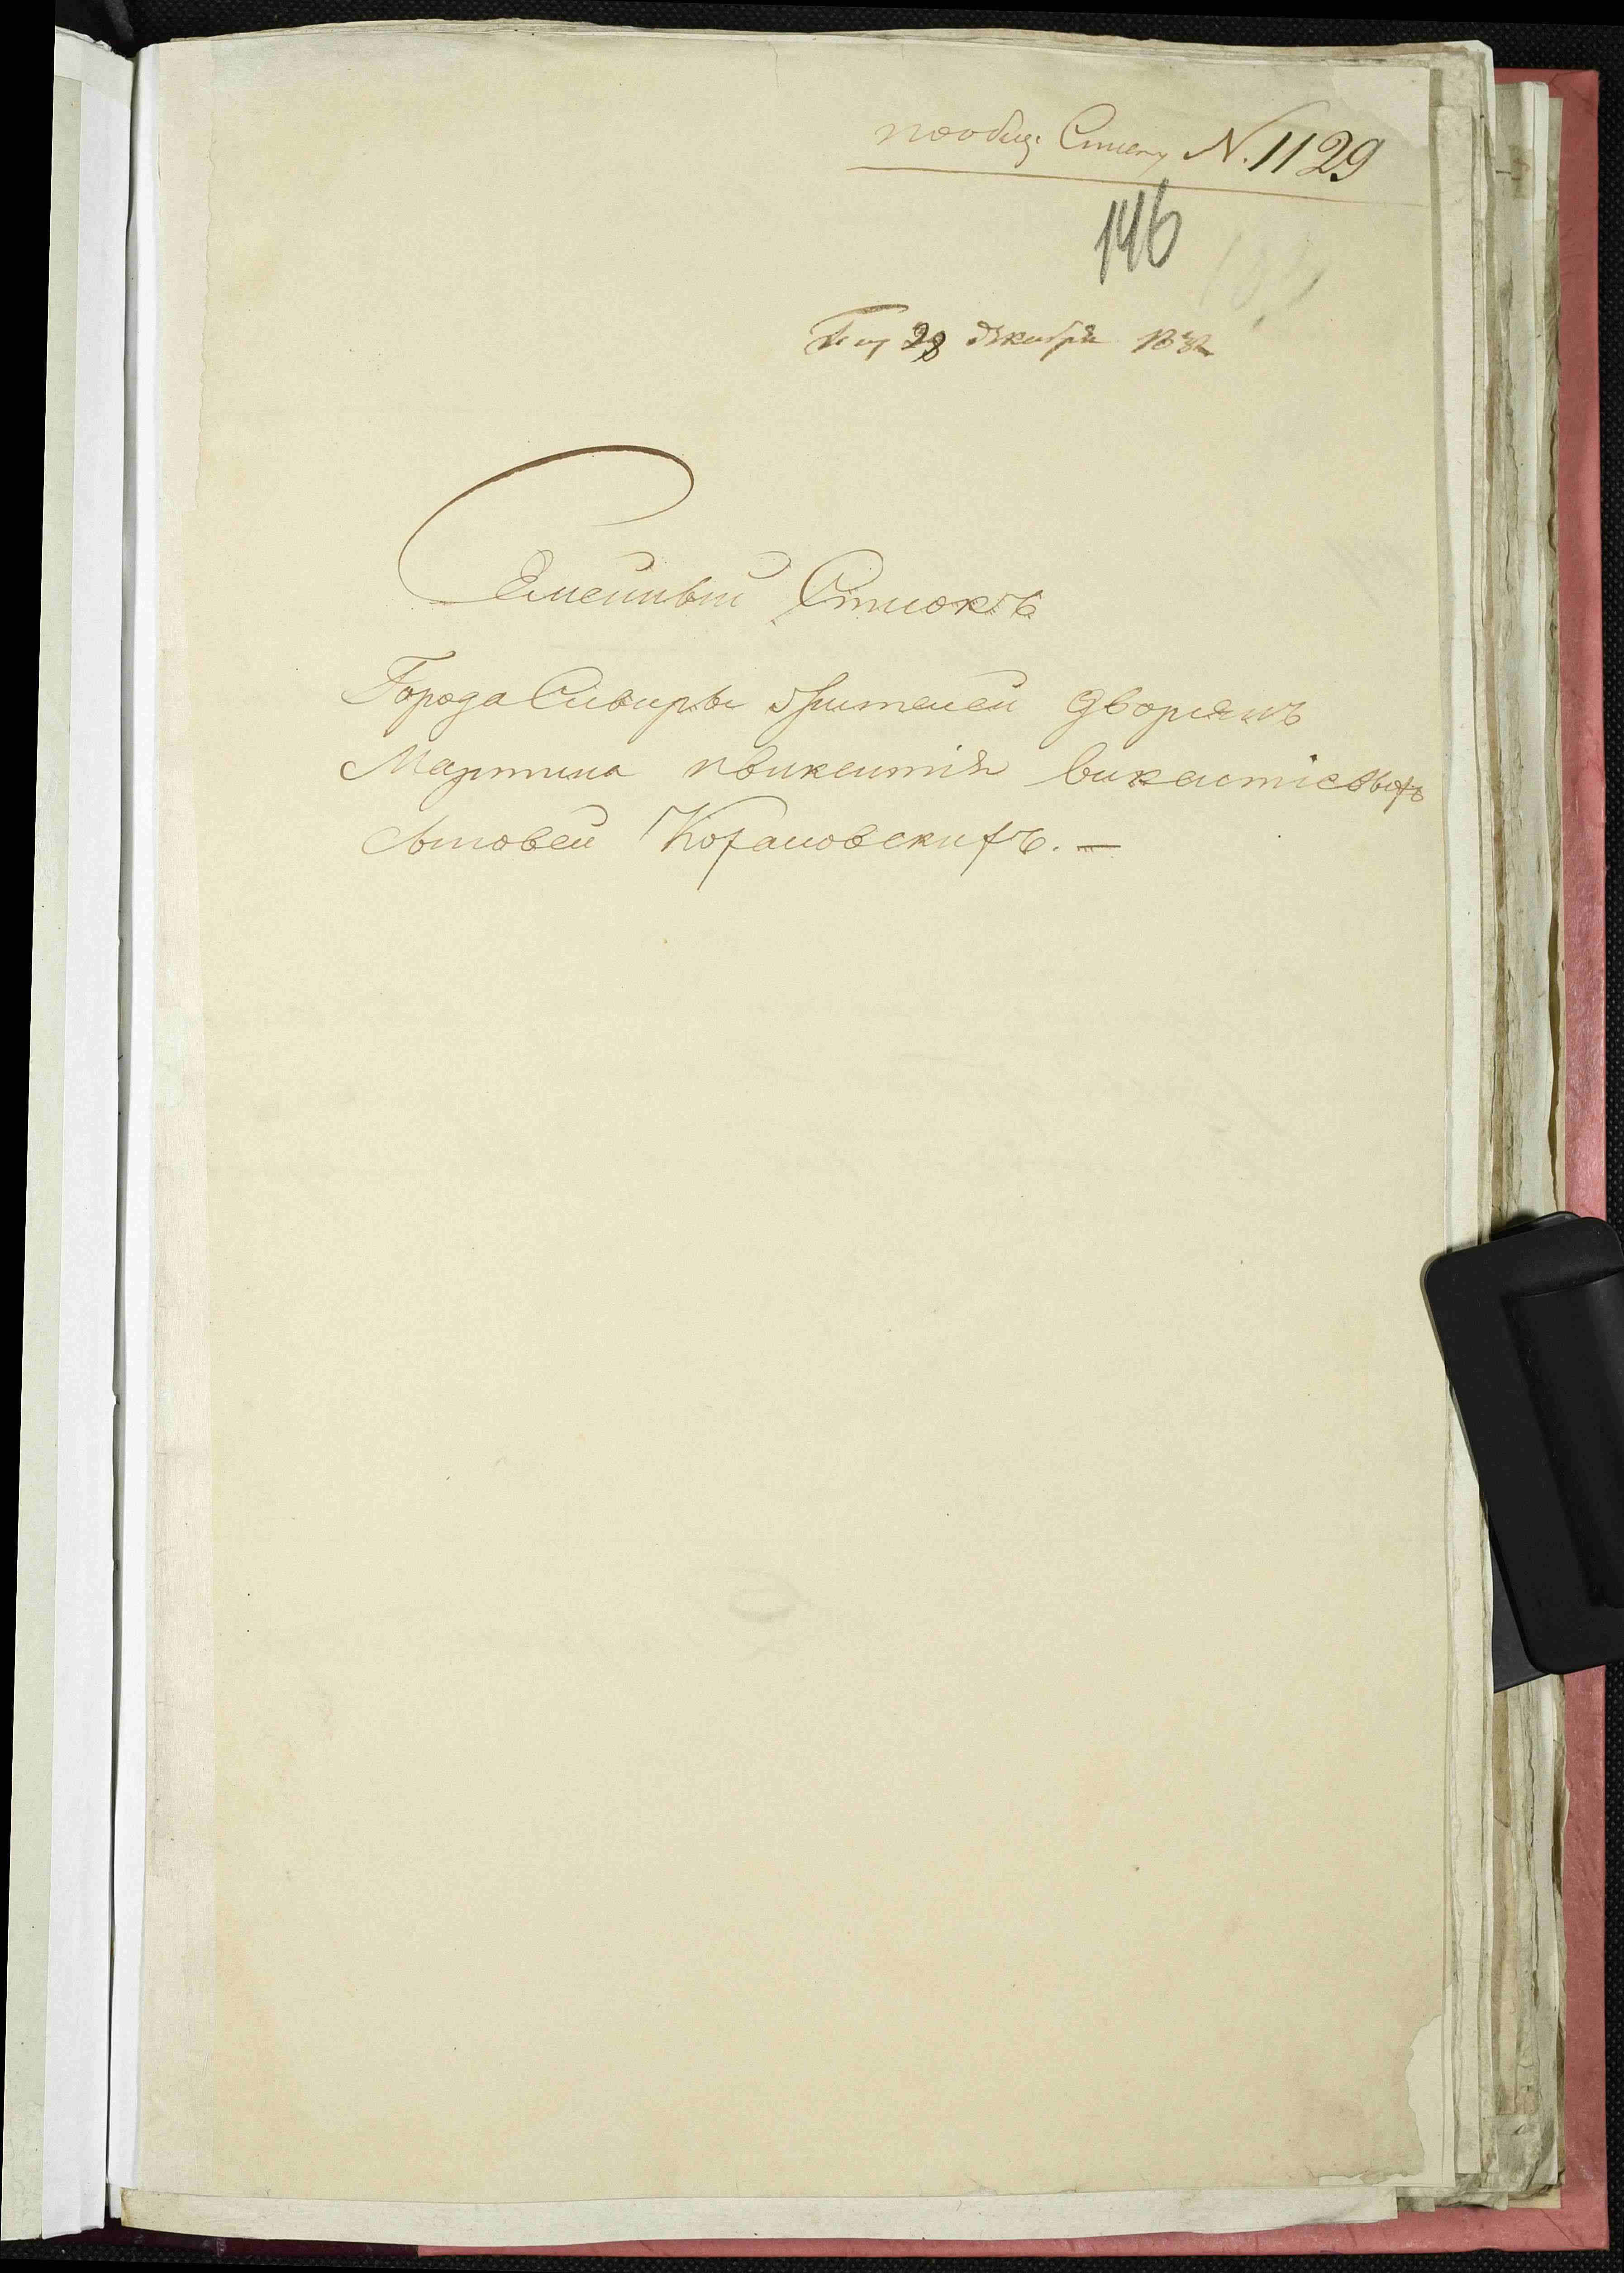 по общ: Списку N. 1129
146
28 декабря
Семейный Списокъ
Города Сибиры жителей дворянъ
Мартина и викентія викентіевыхъ
Сыновей Кохановскихъ. —